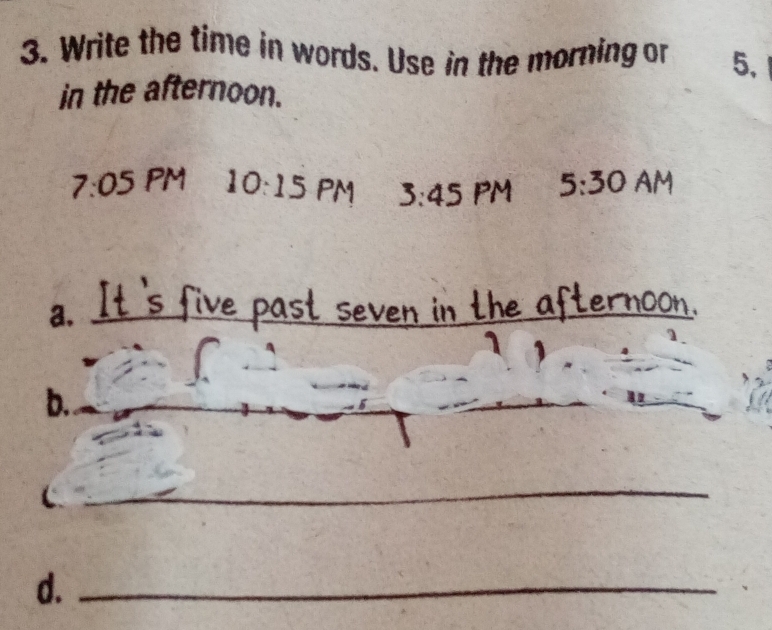 3. Write the time in words. Use in the morning or
in the afternoon.
5.
7:05 PM 10:15 PM 3:45 PM 5:30 AM
a. It's five past seven in the afternoon.
b.
d.